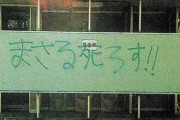 まさる死ろす!!